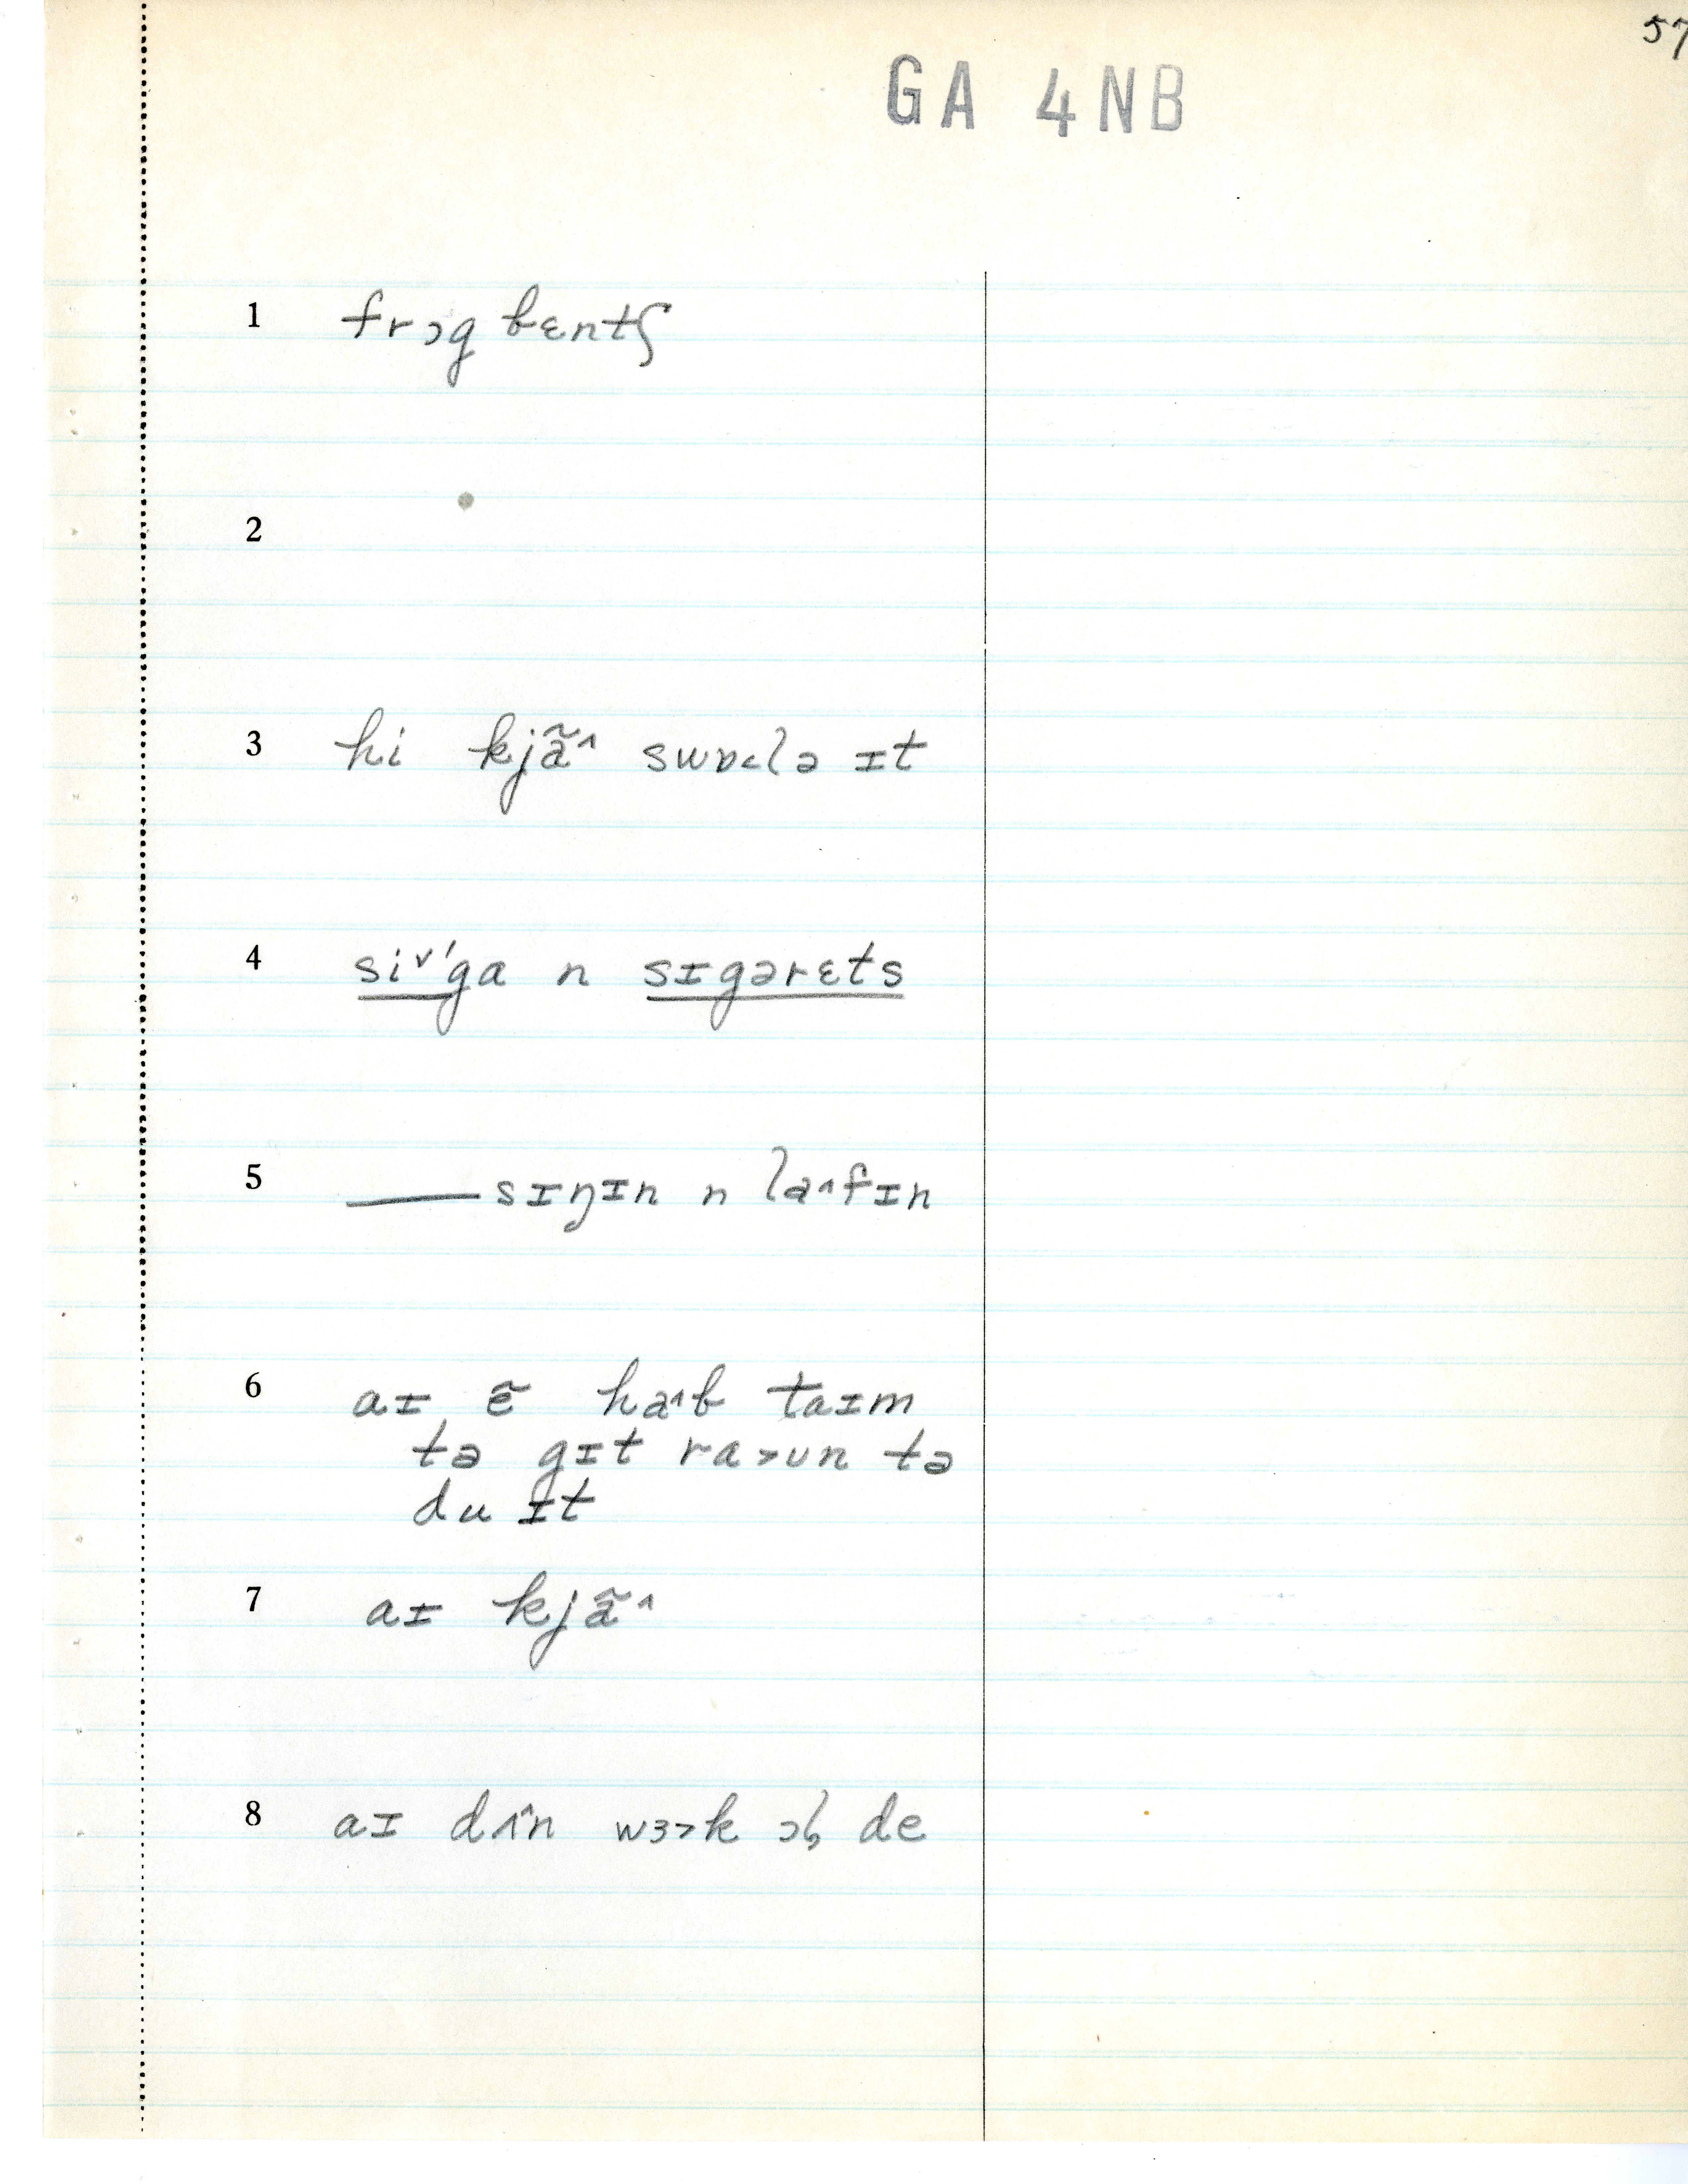 57
GA 4NB
1 frɔg bɛntʃ
2
3 hi kjã^ swɒ<lə ɪt
4 siv'ga n sɪgərɛts
5 ——sɪŋɪn n la^fɪn
6 aɪ ɛ̃ ha^b taɪm
tə gɪt ra>ʊn tə
du ɪt
7 aɪ kjã^
8 aɪ dʌ^n wɜ>k ɔl de